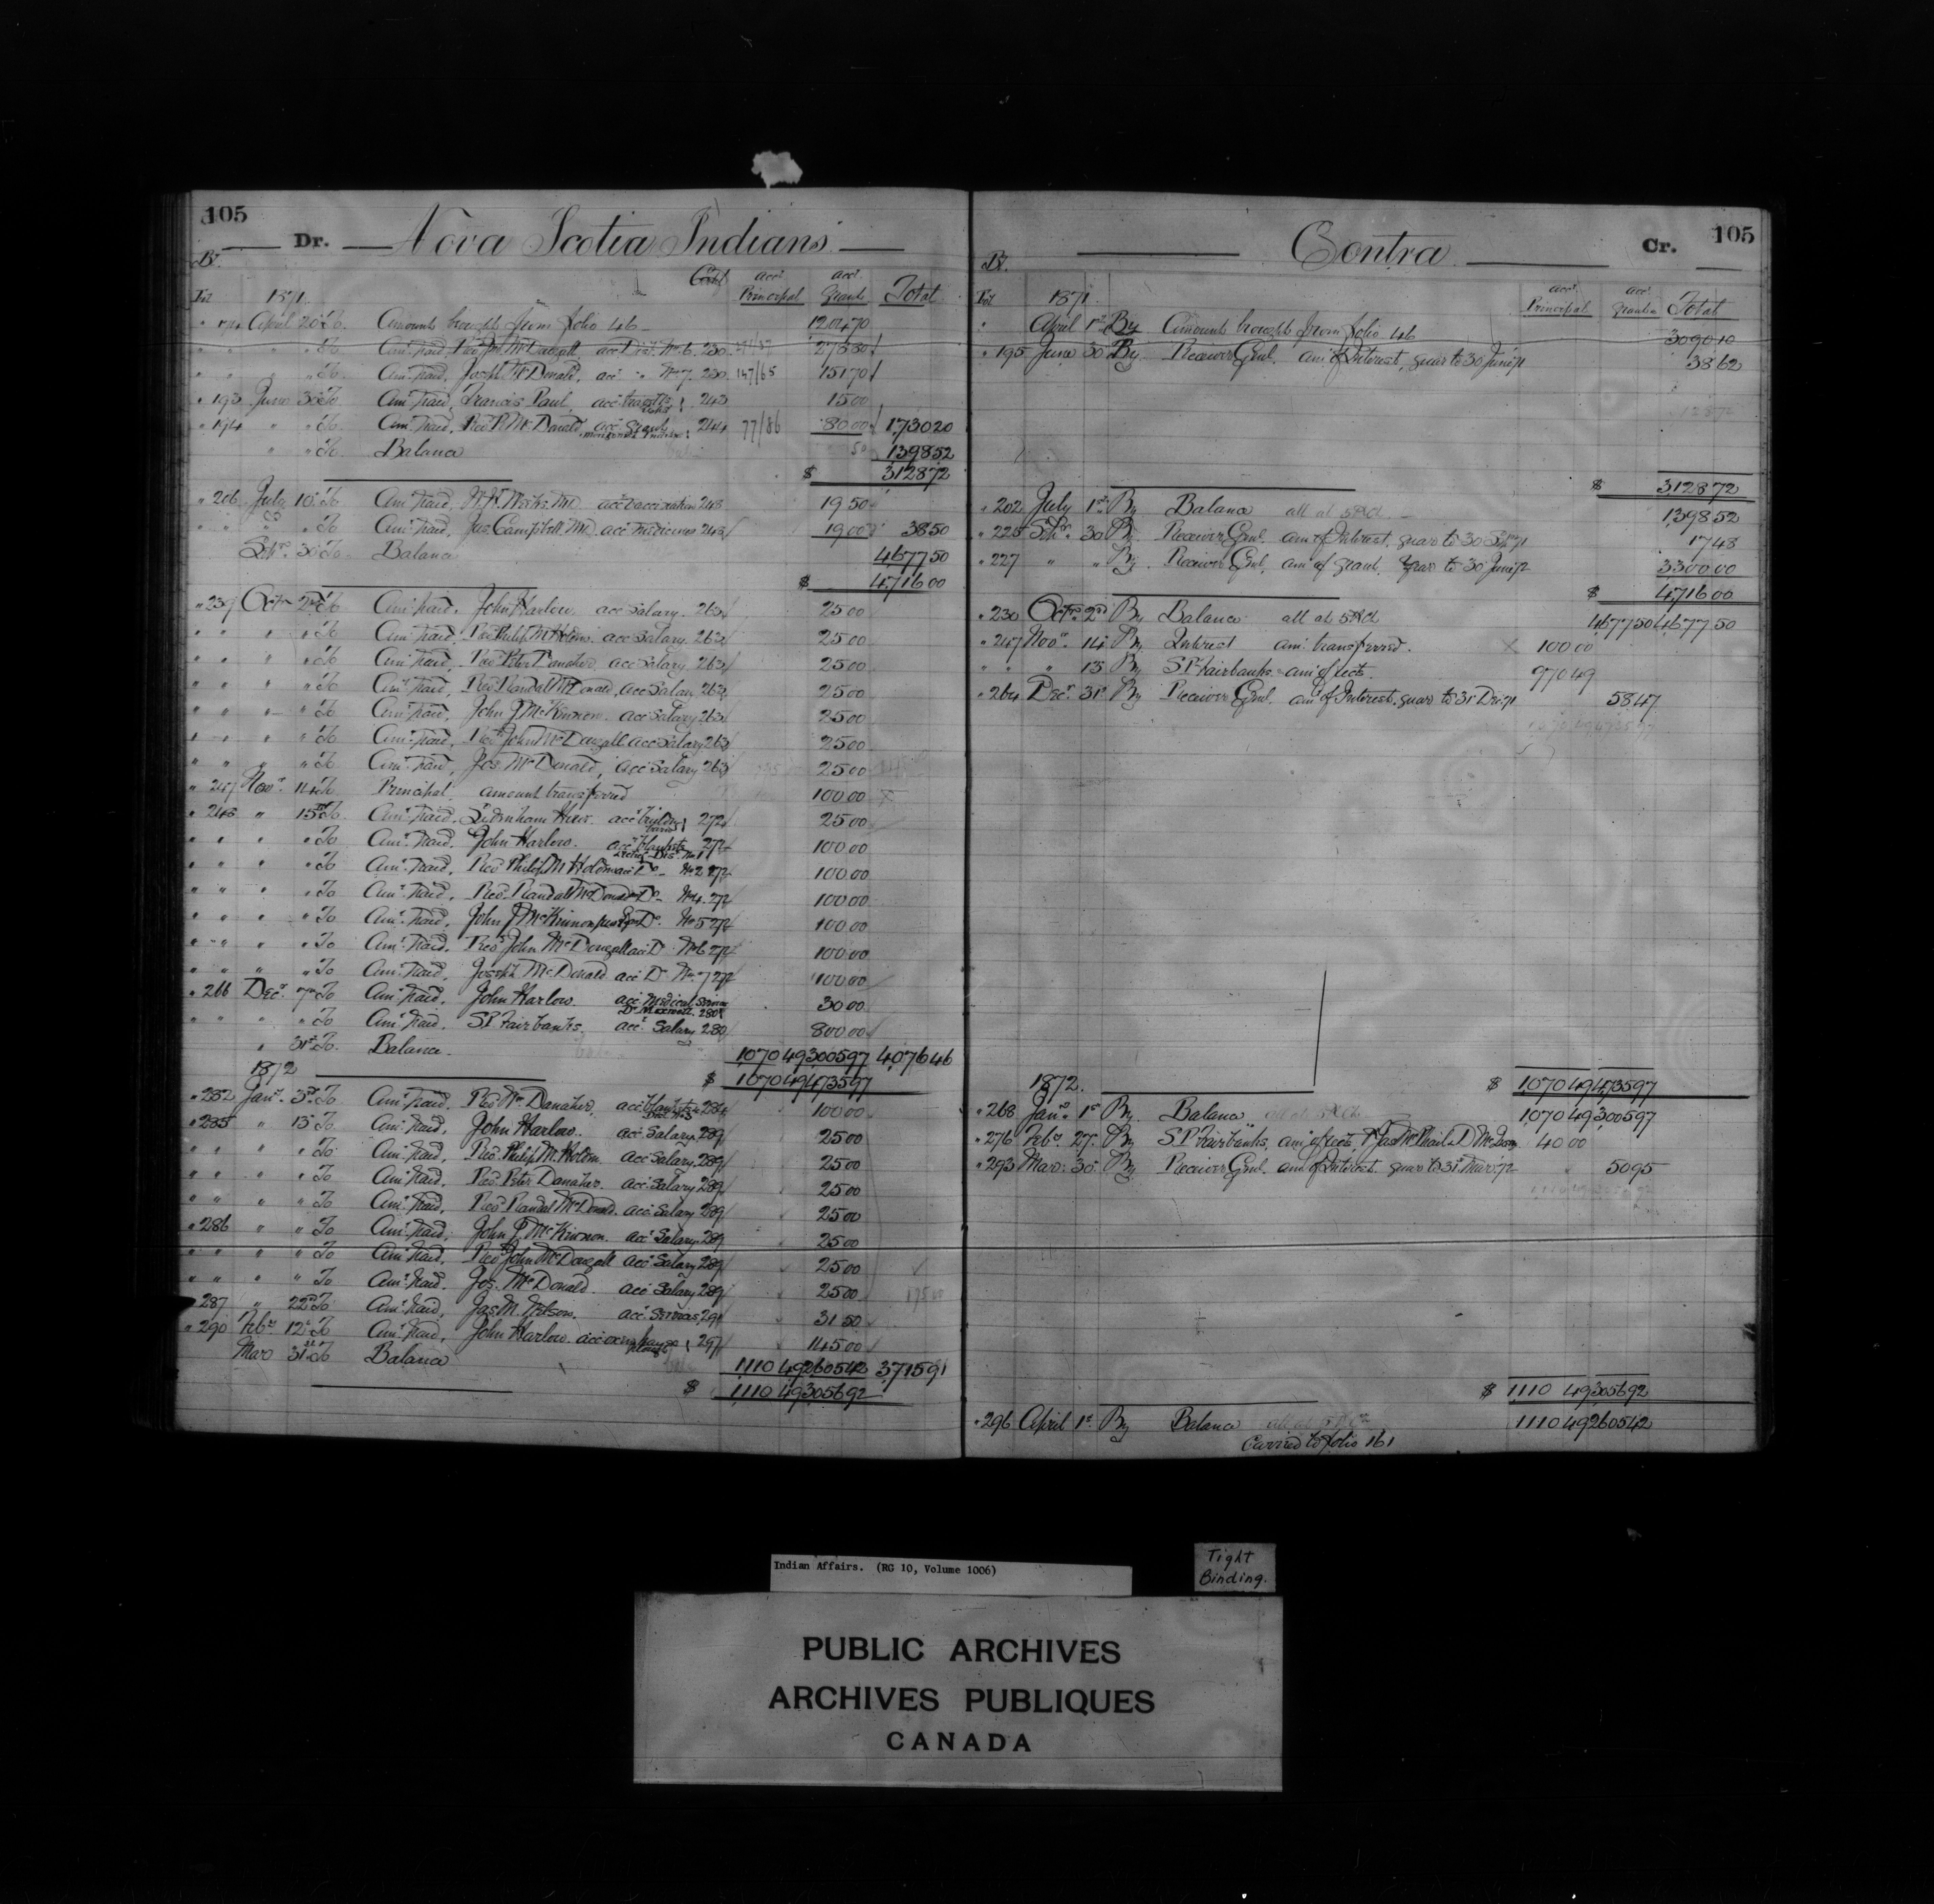 105
Dr. Nova Scotia Indians
Bt. Cert. acct. acct.
Fol 1871. Principal Grants Total
" 174 April 20 To Amount brought from folio 46 1204 70
" " " " To Amt. paid, Revd. Jno. McDougall, acct. Dist. No. 6. 230 278 80
" " " " To Amt. paid, Joseph McDonald, acct. " No. 7. 230 147/65 151 70
" 193 June 30 To Amt. paid, Francis Paul, acct. 243 15 00
" 194 " " To Amt. paid, Revd. R. McDonald, acct. 244 77/86 80 00 1730 20
" " To Balance 1398 52
$ 3128 72
" 206 July 10 To Amt. paid, MD. acct. vaccination 248 19 50
" " " " To Amt. paid, Jas. Campbell MD. acct. medicines 248 19 00 38 50
Sepr. 30 To Balance 4677 50
$ 4716 00
" 237 Octr. 2nd To Amt. paid, John Harlow, acct. Salary. 263 25 00
" " " " To Amt. paid, Revd. Philip M. Holden. acct. Salary. 263 25 00
" " " " To Amt. paid, Revd. Peter Danaher, acct. Salary. 263 25 00
" " " " To Amt. paid, Revd. Randall McDonald, acct. Salary 263 25 00
" " " " To Amt. paid, John J. McKinnon. acct. Salary 263 25 00
" " " " To Amt. paid, Revd. John McDougall acct. Salary 263 25 00
" " " " To Amt. paid, Jos. McDonald, acct. Salary 263 25 00
" 247 Novr. 14 To Principal amount transferred 100 00 X
" 248 " 15th To Amt. paid, acct. 272 25 00
" " " " To Amt. paid, John Harlow. acct. blankets 272 100 00
" " " " To Amt. paid, Revd. Philip M. Holden acct. Do. No. 2 272 100 00
" " " " To Amt. paid, Revd. Randall McDonald Do. No. 4. 272 100 00
" " " " To Amt. paid, John J. McKinnon Do. No. 5 272 100 00
" " " " To Amt. paid, Revd. John McDougall acct. Do. No. 6 272 100 00
" " " " To Amt. paid, Joseph McDonald acct. Do. No. 7 272 100 00
" 266 Decr. 7th To Amt. paid, John Harlow. acct. Medical Service 280 30 00
" " " " To Amt. paid, S.P. Fairbanks. acct. Salary 280 800 00
" 31st To Balance. 1070 49 3005 97 4076 46
1872 $ 1070 49 4735 97
" 282 Jany. 3rd To Amt. paid, Revd. Danaher, acct. blankets 284 100 00
" 285 " 13 To Amt. paid, John Harlow. acct. Salary. 289 25 00
" " " " To Amt. paid, Revd. Philip M. Holden. acct. Salary 289 25 00
" " " " To Amt. paid, Revd. Peter Danaher. acct. Salary 289 25 00
" " " " To Amt. paid, Revd. Randal McDonald. acct. Salary 289 25 00
" 286 " " To Amt. paid, John J. McKinnon. acct. Salary. 289 25 00
" " " " To Amt. paid, Revd. John McDougall acct. Salary 289 25 00
" " " " To Amt. paid, Jos. McDonald. acct. Salary 289 25 00
" 287 " 22nd To Amt. paid, Jas. M. acct. Services 291 31 50
" 290 Feby. 12 To Amt. paid, John Harlow. acct. 297 145 00
Mar. 31st To Balance 1110 49 2605 42 3715 91
$ 1110 49 3056 92
Contra Cr. 105
Bt. acct. acct.
Fol 1871. Principal Grants Total
April 1st By Amount brought from folio 46 3090 10
" 195 June 30 By Receiver Genl. amt. of Interest, quar to 30 June 38 62
$ 3128 72
" 202 July 1st By Balance all at 5 1398 52
" 225 Sepr. 30 By Receiver Genl. amt. of Interest, quar to 30 Sepr. 17 48
" 227 " " By Receiver Genl. amt. of grant, Year to 30 June 3300 00
$ 4716 00
" 230 Octr. 2nd By Balance all at 5 4677 50 4677 50
" 247 Novr. 14 By Interest amt. transferred. X 100 00
" " " 15 By S.P. Fairbanks amt. of 970 49
" 264 Decr. 31st By Receiver Genl. amt. of Interest, quar to 31 Dec 58 47
1872. $ 1070 49 4735 97
" 268 Jany. 1st By Balance all at 5 1070 49 3005 97
" 276 Feby. 27. By S.P. Fairbanks, amt. of 40 00
" 293 Mar. 30 By Receiver Genl. amt. of Interest. quar to 31 Mar. 50 95
$ 1110 49 3056 92
" 296 April 1st By Balance 1110 49 2605 42
Carried to folio 161
Indian Affairs. (RG 10, Volume 1006)
Tight
Binding.
PUBLIC ARCHIVES
ARCHIVES PUBLIQUES
CANADA